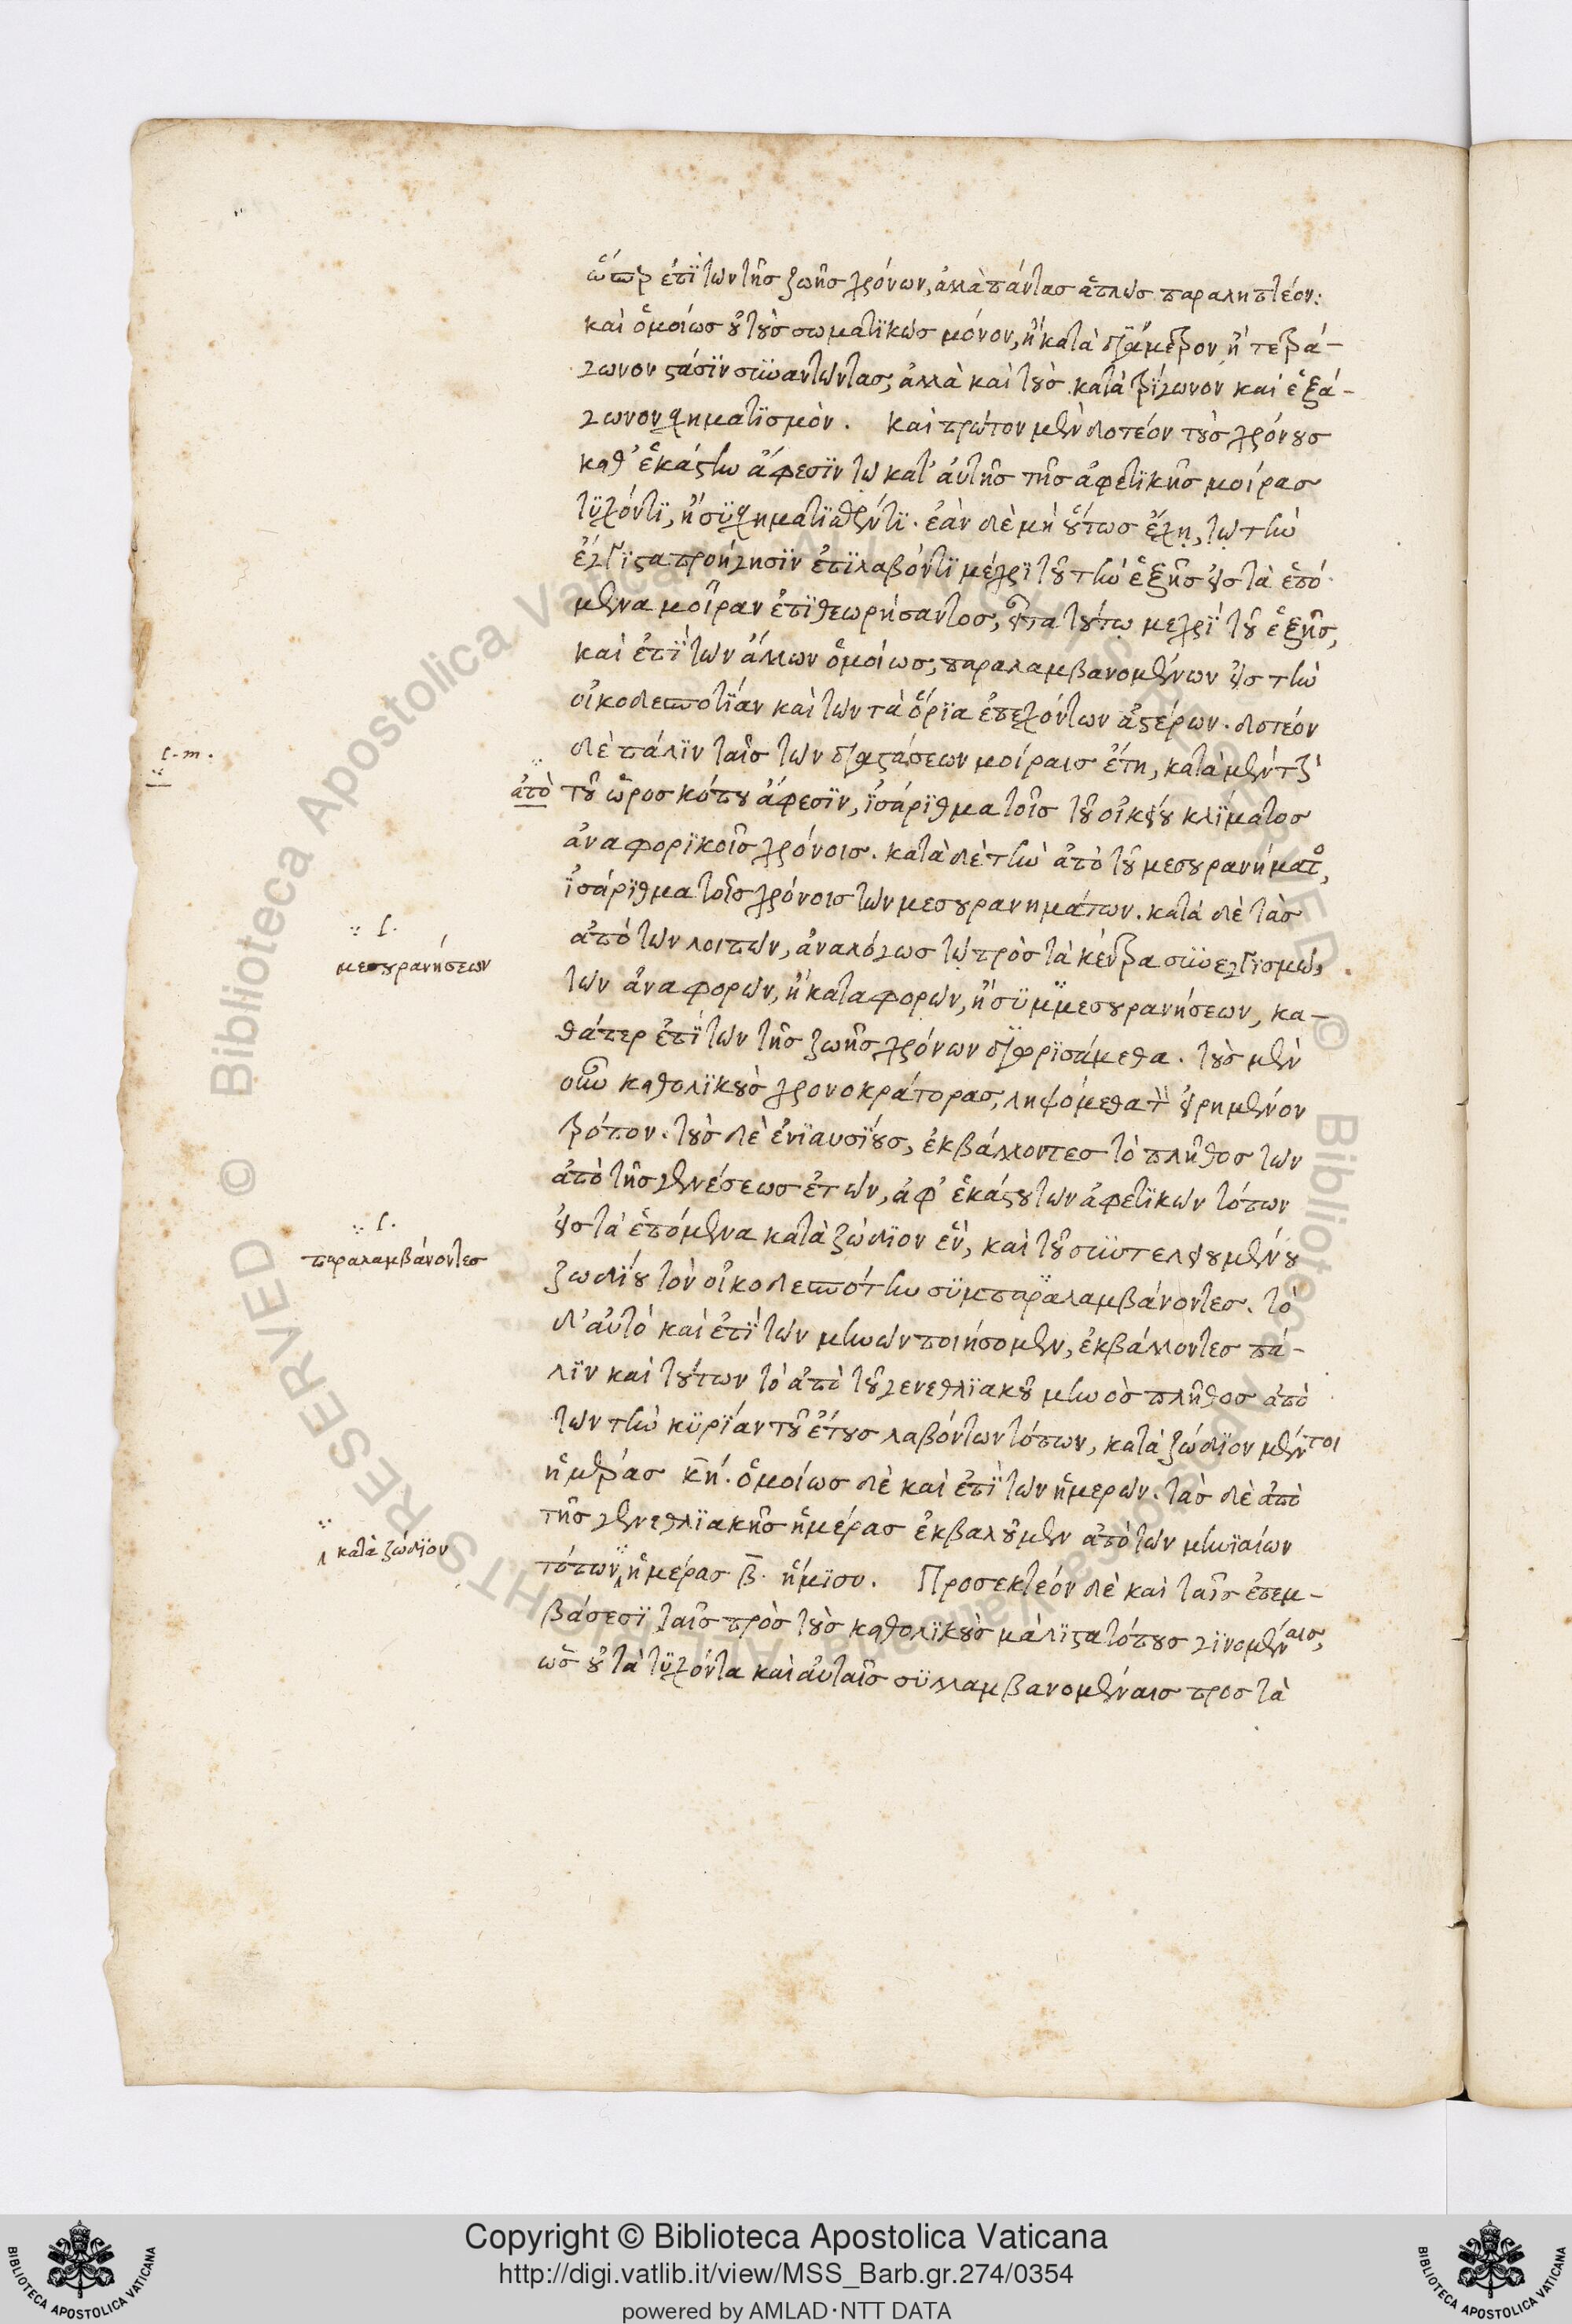 ὥσπερ ἐπὶ τῶν τῆς ζωῆς χρόνων, ἀλλὰ πάντας ἁπλῶς παραληπτέον:
καὶ ὁμοίως οὐ τοὺς σωματικῶς μόνον, ἢ κατὰ διάμετρον ἢ τετρά-
γωνον στάσιν συναντῶντας, ἀλλὰ καὶ τοὺς κατὰ τρίγωνον καὶ ἑξά-
γωνον σχηματισμόν. καὶ πρῶτον μὲν δοτέον τοὺς χρόνους
καθ' ἑκάστην ἄφεσιν τῷ κατ' αὐτῆς τῆς ἀφετικῆς μοίρας
τυχόντι, ἢ συσχηματισθέντι. ἐὰν δὲ μὴ οὕτως ἔχῃ, τῷ τὴν
ἔγγιστα προήγησιν ἐπιλαβόντι μέχρι τοῦ τὴν ἑξῆς εἰς τὰ ἑπό-
μενα μοῖραν ἐπιθεωρήσαντος, εἶτα τούτῳ μεχρὶ τοῦ ἑξῆς,
καὶ ἐπὶ τῶν ἄλλων ὁμοίως, παραλαμβανομένων εἰς τὴν
οἰκοδεσποτίαν καὶ τῶν τὰ ὅρια ἐπεχόντων ἀστέρων. δοτέον
δὲ πάλιν ταῖς τῶν διαστάσεων μοίραις ἔτη, κατὰ μὲν τὴν
ἀπὸ τοῦ ὡροσκόπου ἄφεσιν, ἰσάριθμα τοῖς τοῦ οἰκείου κλίματος
ἀναφορικοῖς χρόνοις. κατὰ δὲ τὴν ἀπὸ τοῦ μεσουρανήματος,
ἰσάριθμα τοῖς χρόνοις τῶν μεσουρανημάτων. κατὰ δὲ τὰς
ἀπὸ τῶν λοιπῶν, ἀναλόγως τῷ πρὸς τὰ κέντρα συνεγγισμῷ,
τῶν ἀναφορῶν, ἢ καταφορῶν, ἢ συμμεσουρανήσεων, κα-
θάπερ ἐπὶ τῶν τῆς ζωῆς χρόνων διωρισάμεθα. τοὺς μὲν
οὖν καθολικοὺς χρονοκράτορας, ληψόμεθα τὸν εἰρημένον
τρόπον. τοὺς δὲ ἐνιαυσίους, ἐκβάλλοντες τὸ πλῆθος τῶν
ἀπὸ τῆς γενέσεως ἐτῶν, ἀφ' ἑκάστου τῶν ἀφετικῶν τόπων
εἰς τὰ ἑπόμενα κατὰ ζώδιον ἓν, καὶ τοῦ συντελειουμένου
ζωδίου τὸν οἰκοδεσπότην συμπαραλαμβάνοντες. τὸ
δ' αὐτὸ καὶ ἐπὶ τῶν μηνῶν ποιήσομεν, ἐκβάλλοντες πά-
λιν καὶ τούτων τὸ ἀπὸ τοῦ γενεθλιακοῦ μηνὸς πλῆθος ἀπὸ
τῶν τὴν κυρίαν τοῦ ἔτους λαβόντων τόπων, κατὰ ζώδιον μέντοι
ἡμέρας κη. ὁμοίως δὲ καὶ ἐπὶ τῶν ἡμερῶν. τὰς δὲ ἀπὸ
τῆς γενεθλιακῆς ἡμέρας ἐκβαλοῦμεν ἀπὸ τῶν μηνιαίων
τόπων, ἡμέρας β. ἥμισυ. Προσεκτέον δὲ καὶ ταῖς ἐπεμ-
βάσεσι ταῖς πρὸς τοὺς καθολικοὺς μάλιστα τόπους γινομέναις,
ὡς οὐ τὰ τυχόντα καὶ αὐταῖς συλλαμβανομέναις προς τὰ
c. m.
f.
μεσουρανήσεων
f.
παραλαμβάνοντες
κατὰ ζώδιον
Copyright © Biblioteca Apostolica Vaticana
http://digi.vatlib.it/view/MSS_Barb.gr.274/0354
powered by AMLAD·NTT DATA